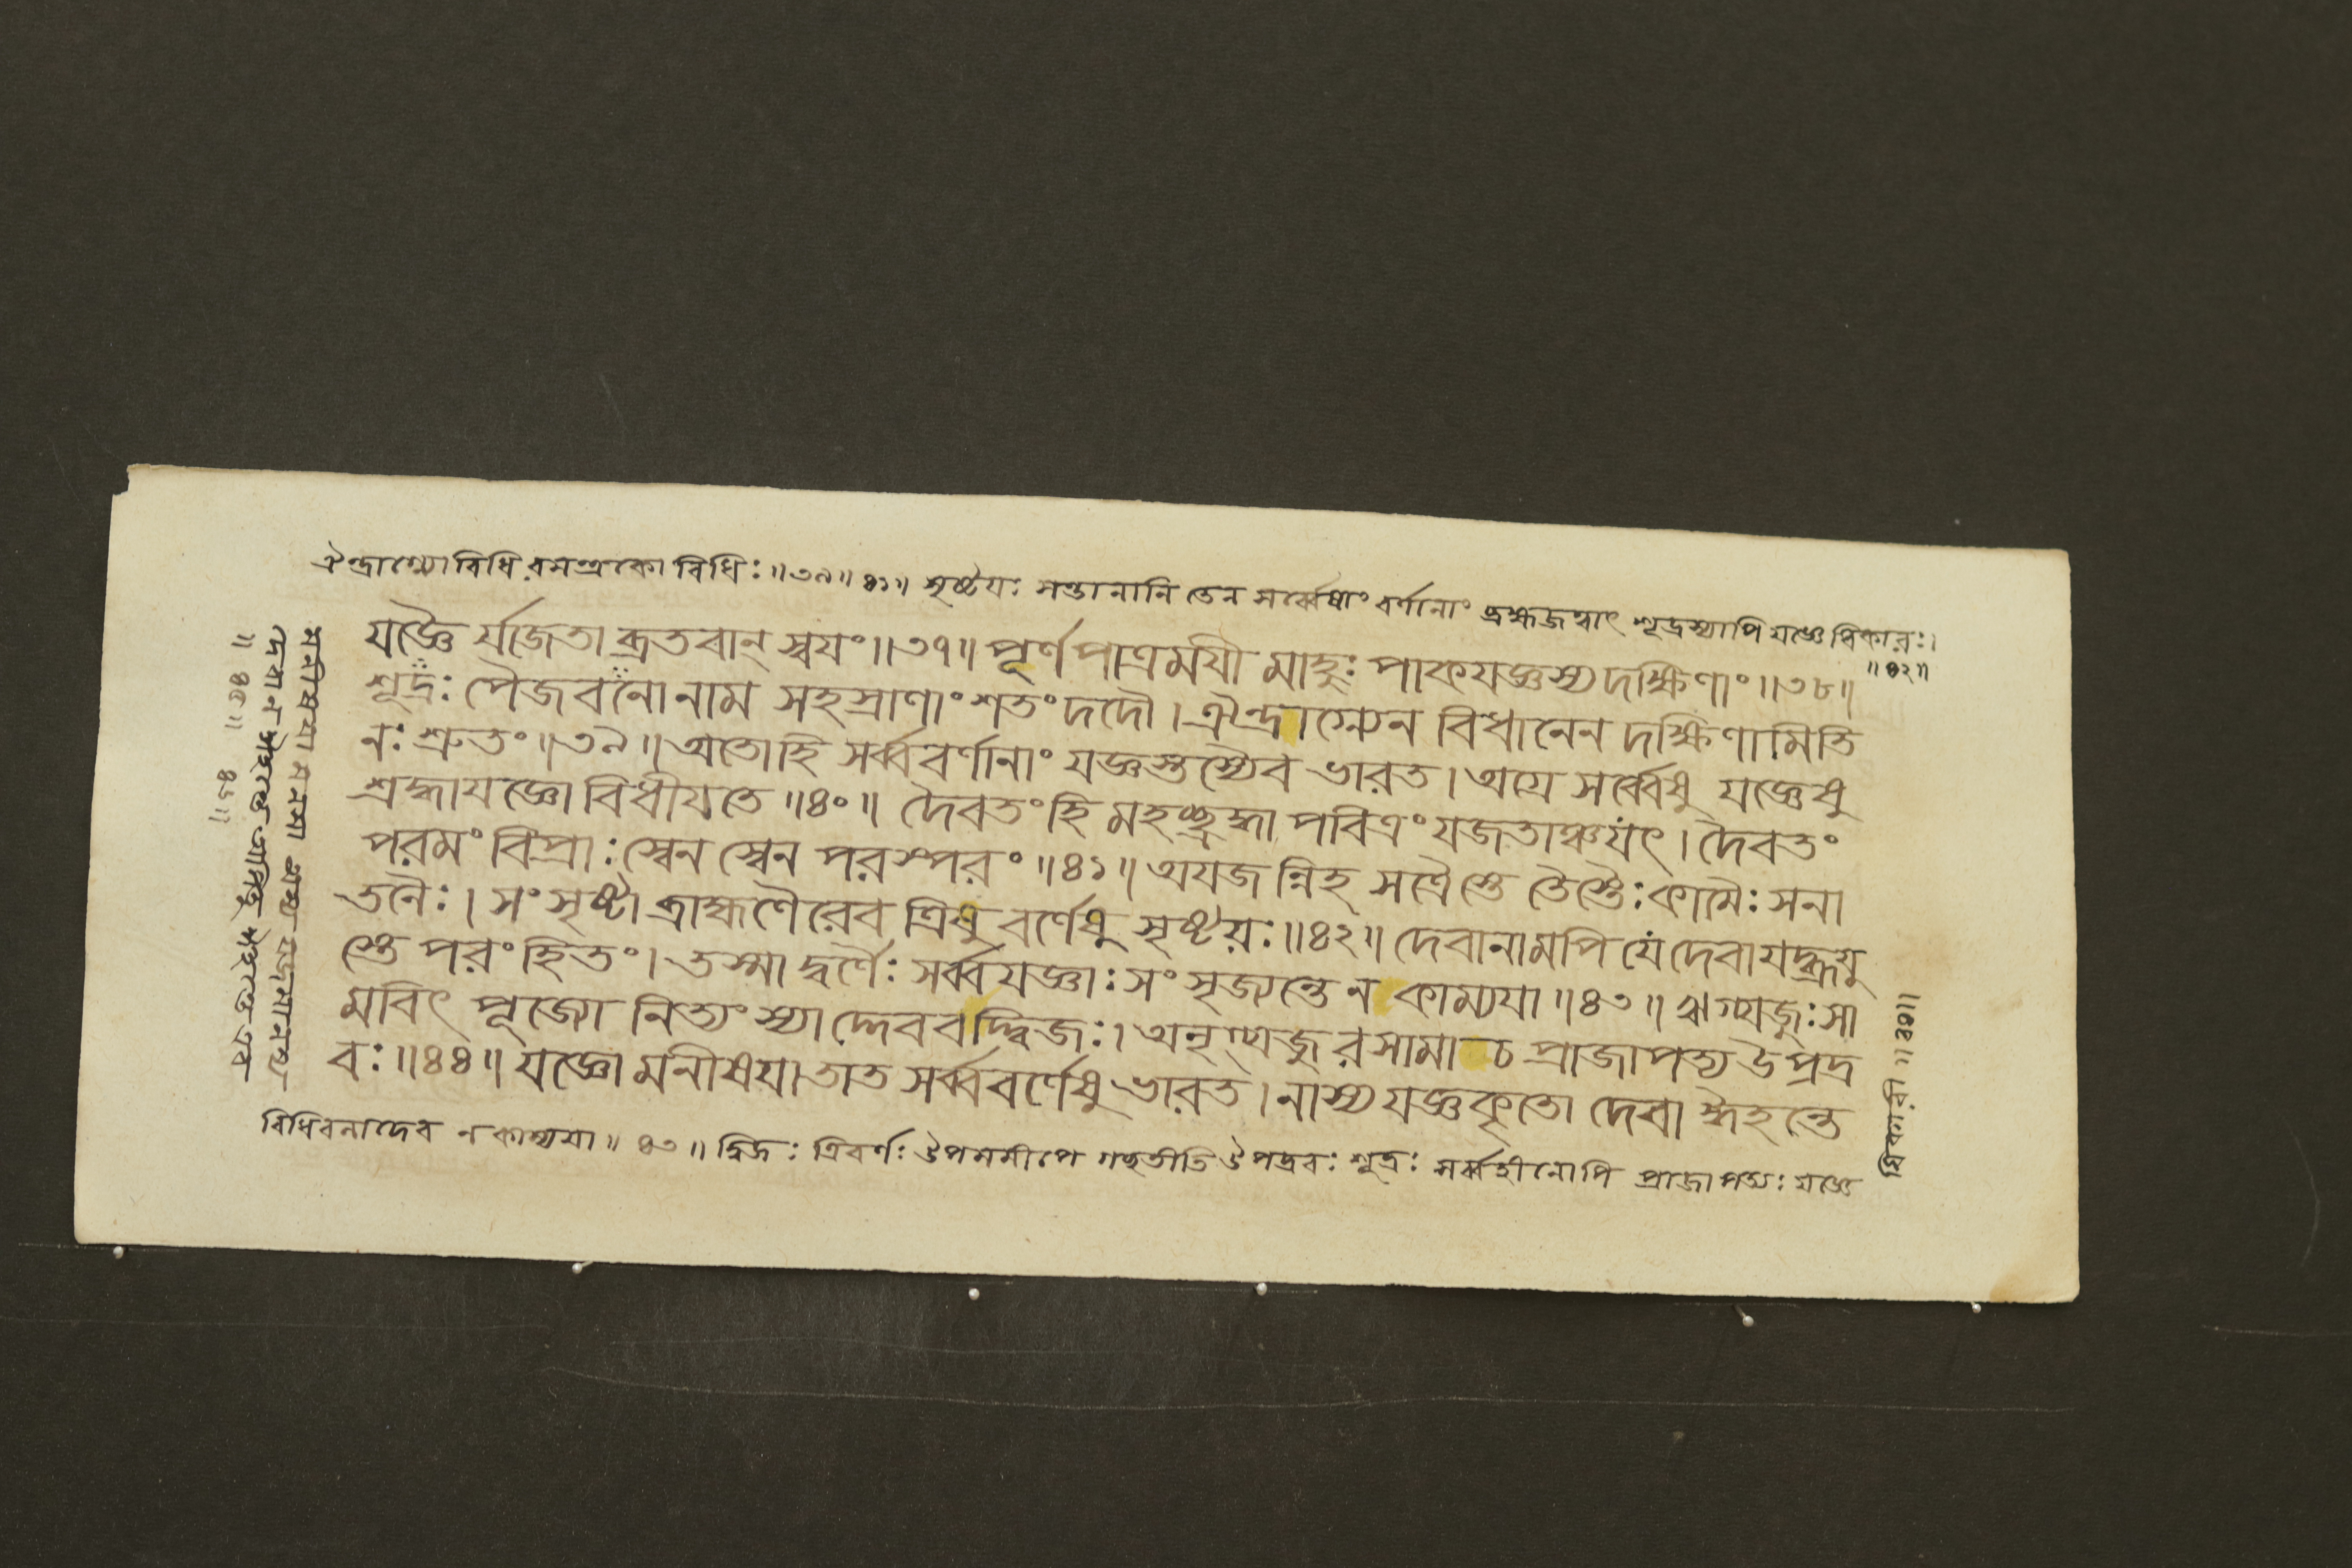 ঐন্দ্রাগ্ন্যোবিধি রমন্ত্রকো বিধিঃ ॥৩৯॥ ৪১॥ সৃষ্টয়ঃ সন্তানানি তেন সর্ব্বেষাং বর্ণানাং ব্রহ্মজত্বাৎ শূদ্রস্যাপি যজ্ঞেধিকারঃ।
॥৪২॥
যজ্ঞৈ র্যাজেতা ব্রতবান্ স্বয়ং॥৩৭॥ পূর্ণপাত্রময়ী মাহুঃ পাকযজ্ঞস্য দক্ষিণাং॥৩৮॥
শূদ্রঃ পৈজবনো নাম সহস্রাণাং শতং দদৌ। ঐন্দ্রাগ্ন্যেন বিধানেন দক্ষিণামিতি
নঃ শ্রুতং॥৩৯॥ অতোহি সর্ব্ববর্ণানাং যজ্ঞস্তস্যৈব ভারত। অগ্রে সর্ব্বেষু যজ্ঞেষু
শ্রদ্ধাযজ্ঞো বিধীযতে॥৪০॥ দৈবতং হি মহচ্ছ্রদ্ধা পবিত্রং যজতাঞ্চ যৎ। দৈবতং
পরমং বিপ্রাঃ স্বেন স্বেন পরস্পরং॥৪১॥ অযজন্নিহ সত্রৈস্তে তৈস্তৈঃ কামৈঃ সনা
তনৈঃ। সংসৃষ্টা ব্রাহ্মণৈরেব ত্রিষু বর্ণেষু সৃষ্টয়ঃ॥৪২॥ দেবানামপি যে দেবা যদ্ব্রূয়ু
স্তে পরং হিতং। তস্মাদ্বর্ণৈঃ সর্ব্বযজ্ঞাঃ সংসৃজ্যন্তে ন কাম্যযা॥৪৩॥ ঋগ্যজুঃসা
মবিৎ পূজ্যো নিত্যং স্যাদ্দেববদ্দ্বিজঃ। অনৃগ্যজুরসামা চ প্রাজাপত্য উপদ্র
বঃ॥৪৪॥ যজ্ঞো মনীষযা তাত সর্ব্ববর্ণেষু ভারত। নাস্য যজ্ঞকৃতো দেবা ঈহন্তে
বিধিবলাদেব ন কাম্যযা॥ ৪৩॥ দ্বিজঃ ত্রিবর্ণঃ উপসমীপে গচ্ছতীতি উপদ্রবঃ শূদ্রঃ সর্ব্বহীনোপি প্রাজাপত্যঃ যজ্ঞে
ধিকারী॥৪৪॥
মনীষযা মনসা অস্য যজমানস্য
দেবা ন ঈহন্তে অপিতু ঈহন্তে এব
॥৪৫॥ ৪৬॥